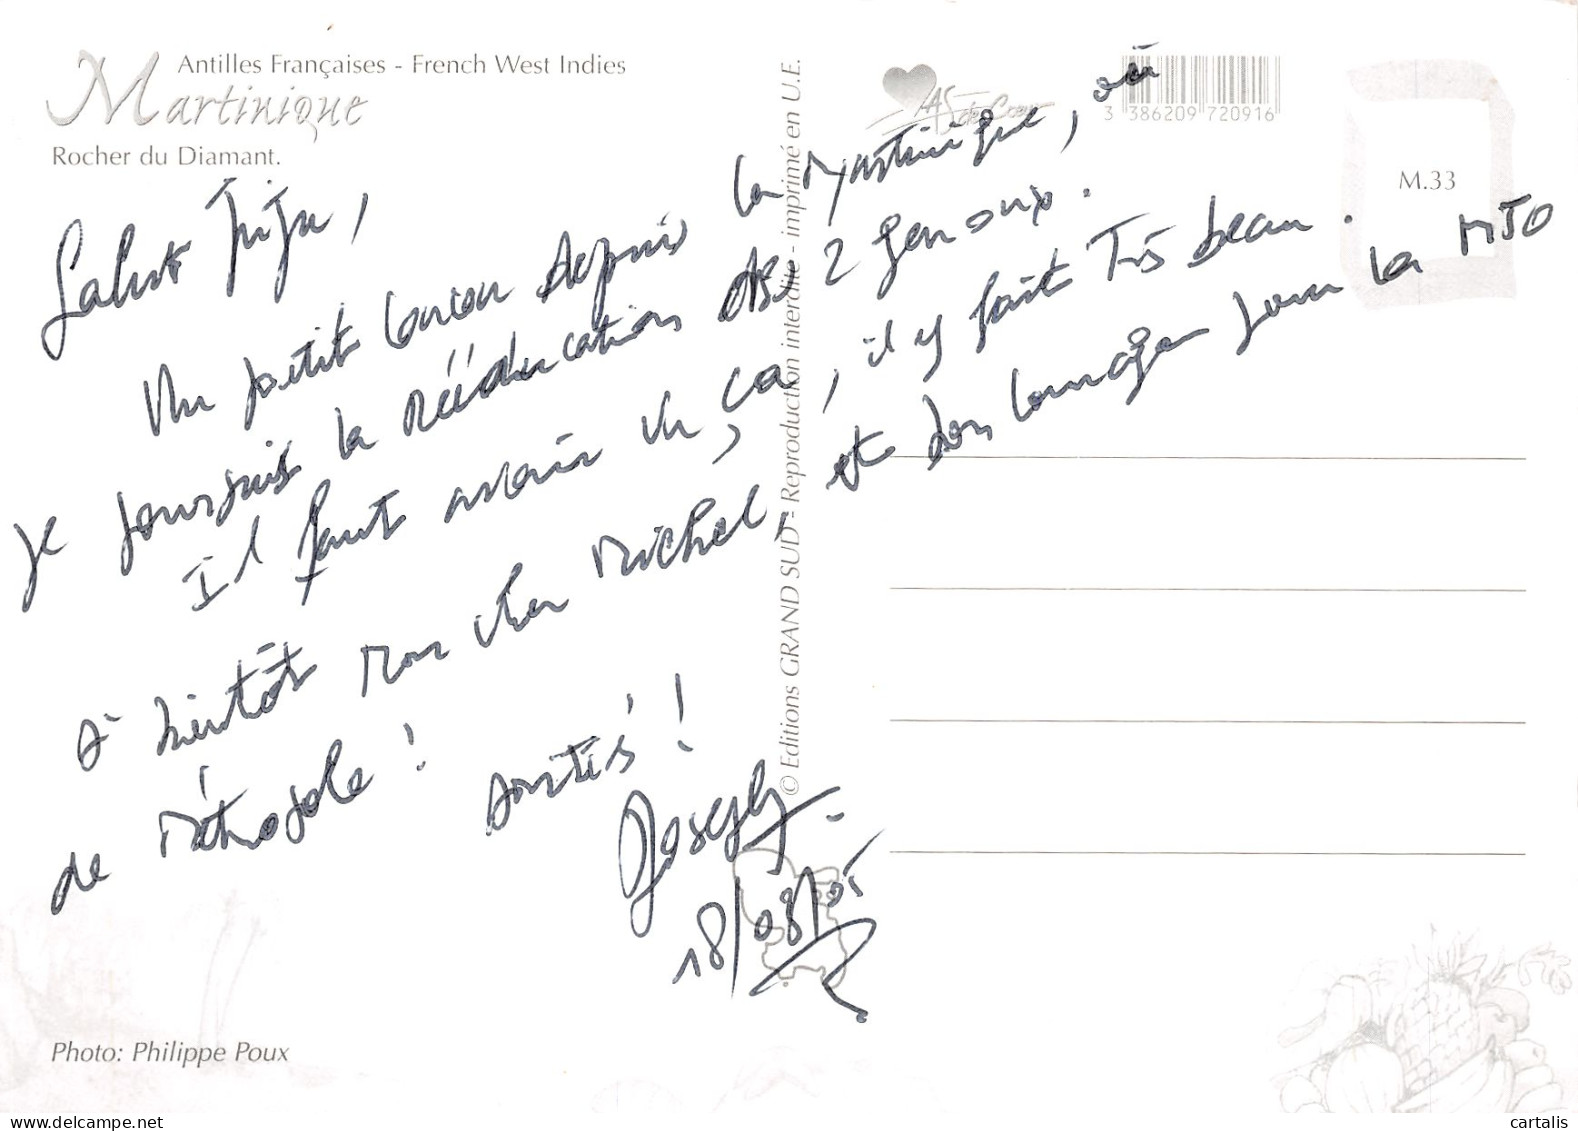 Antilles Françaises - French West Indies
Martinique
Rocher du Diamant.
As de Coeur
3 386209 720916
M.33
Salut Juju,
Un petit coucou depuis la Martinique, où
je poursuis la rééducation des 2 genoux.
Il faut avoir vu ça, il y fait très beau.
A bientôt mon cher Michel, et bon courage pour la MJO
de métropole ! sortis !
Joseph
18/08/05
© Editions GRAND SUD - Reproduction interdite - imprimé en U.E.
Photo: Philippe Poux
cartalis